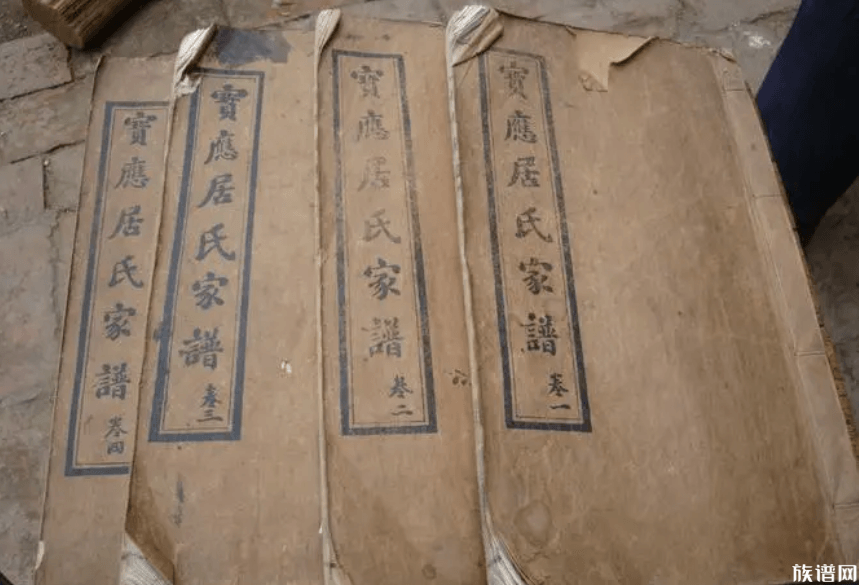 寶應居氏家譜
卷一
寶應居氏家譜
卷二
寶應居氏家譜
卷三
寶應居氏家譜
卷四
族谱网